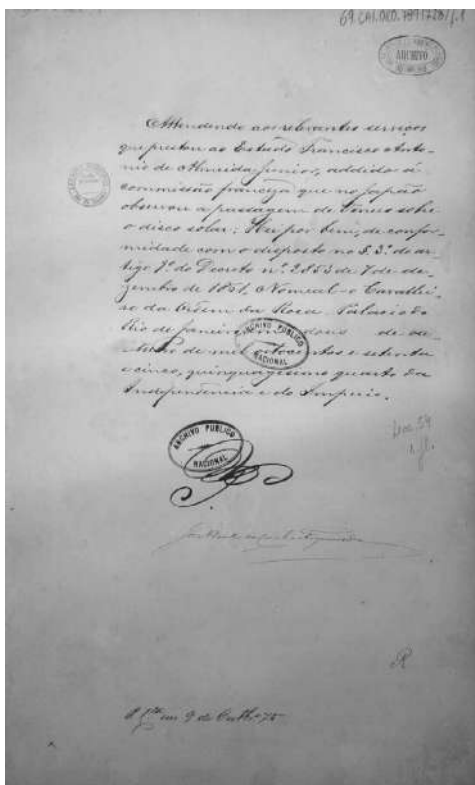 69.CAI.DEC.
ARCHIVO
Attendendo aos relevantes serviços
que prestou ao Estado Francisco Anto-
nio de Almeida Junior, addido á
commissão franceza que no Japão
observou a passagem de Venus sobre
o disco solar: Hei por bem, de confor-
midade com o disposto no § 3º do ar-
tigo 9º do Decreto nº 2853 de 7 de de-
zembro de 1861, Nomeal-o Cavallei-
ro da Ordem da Rosa. Palacio do
Rio de Janeiro em dous de ou-
tubro de mil oitocentos e setenta
e cinco, quinquagesimo quarto da
Independencia e do Imperio.
ARCHIVO PUBLICO
NACIONAL
ARCHIVO PUBLICO
NACIONAL
Doc. 59
1 fl.
R
em 9 de Outbº 75